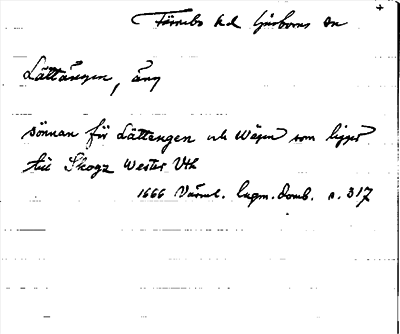 Färnebo hd Gåsborns sn +
Lättängen, äng
sönnan för Lättengen och Wägen som ligger
till Skogz Wester Uth
1666 Värml. lagm.domb. s. 317